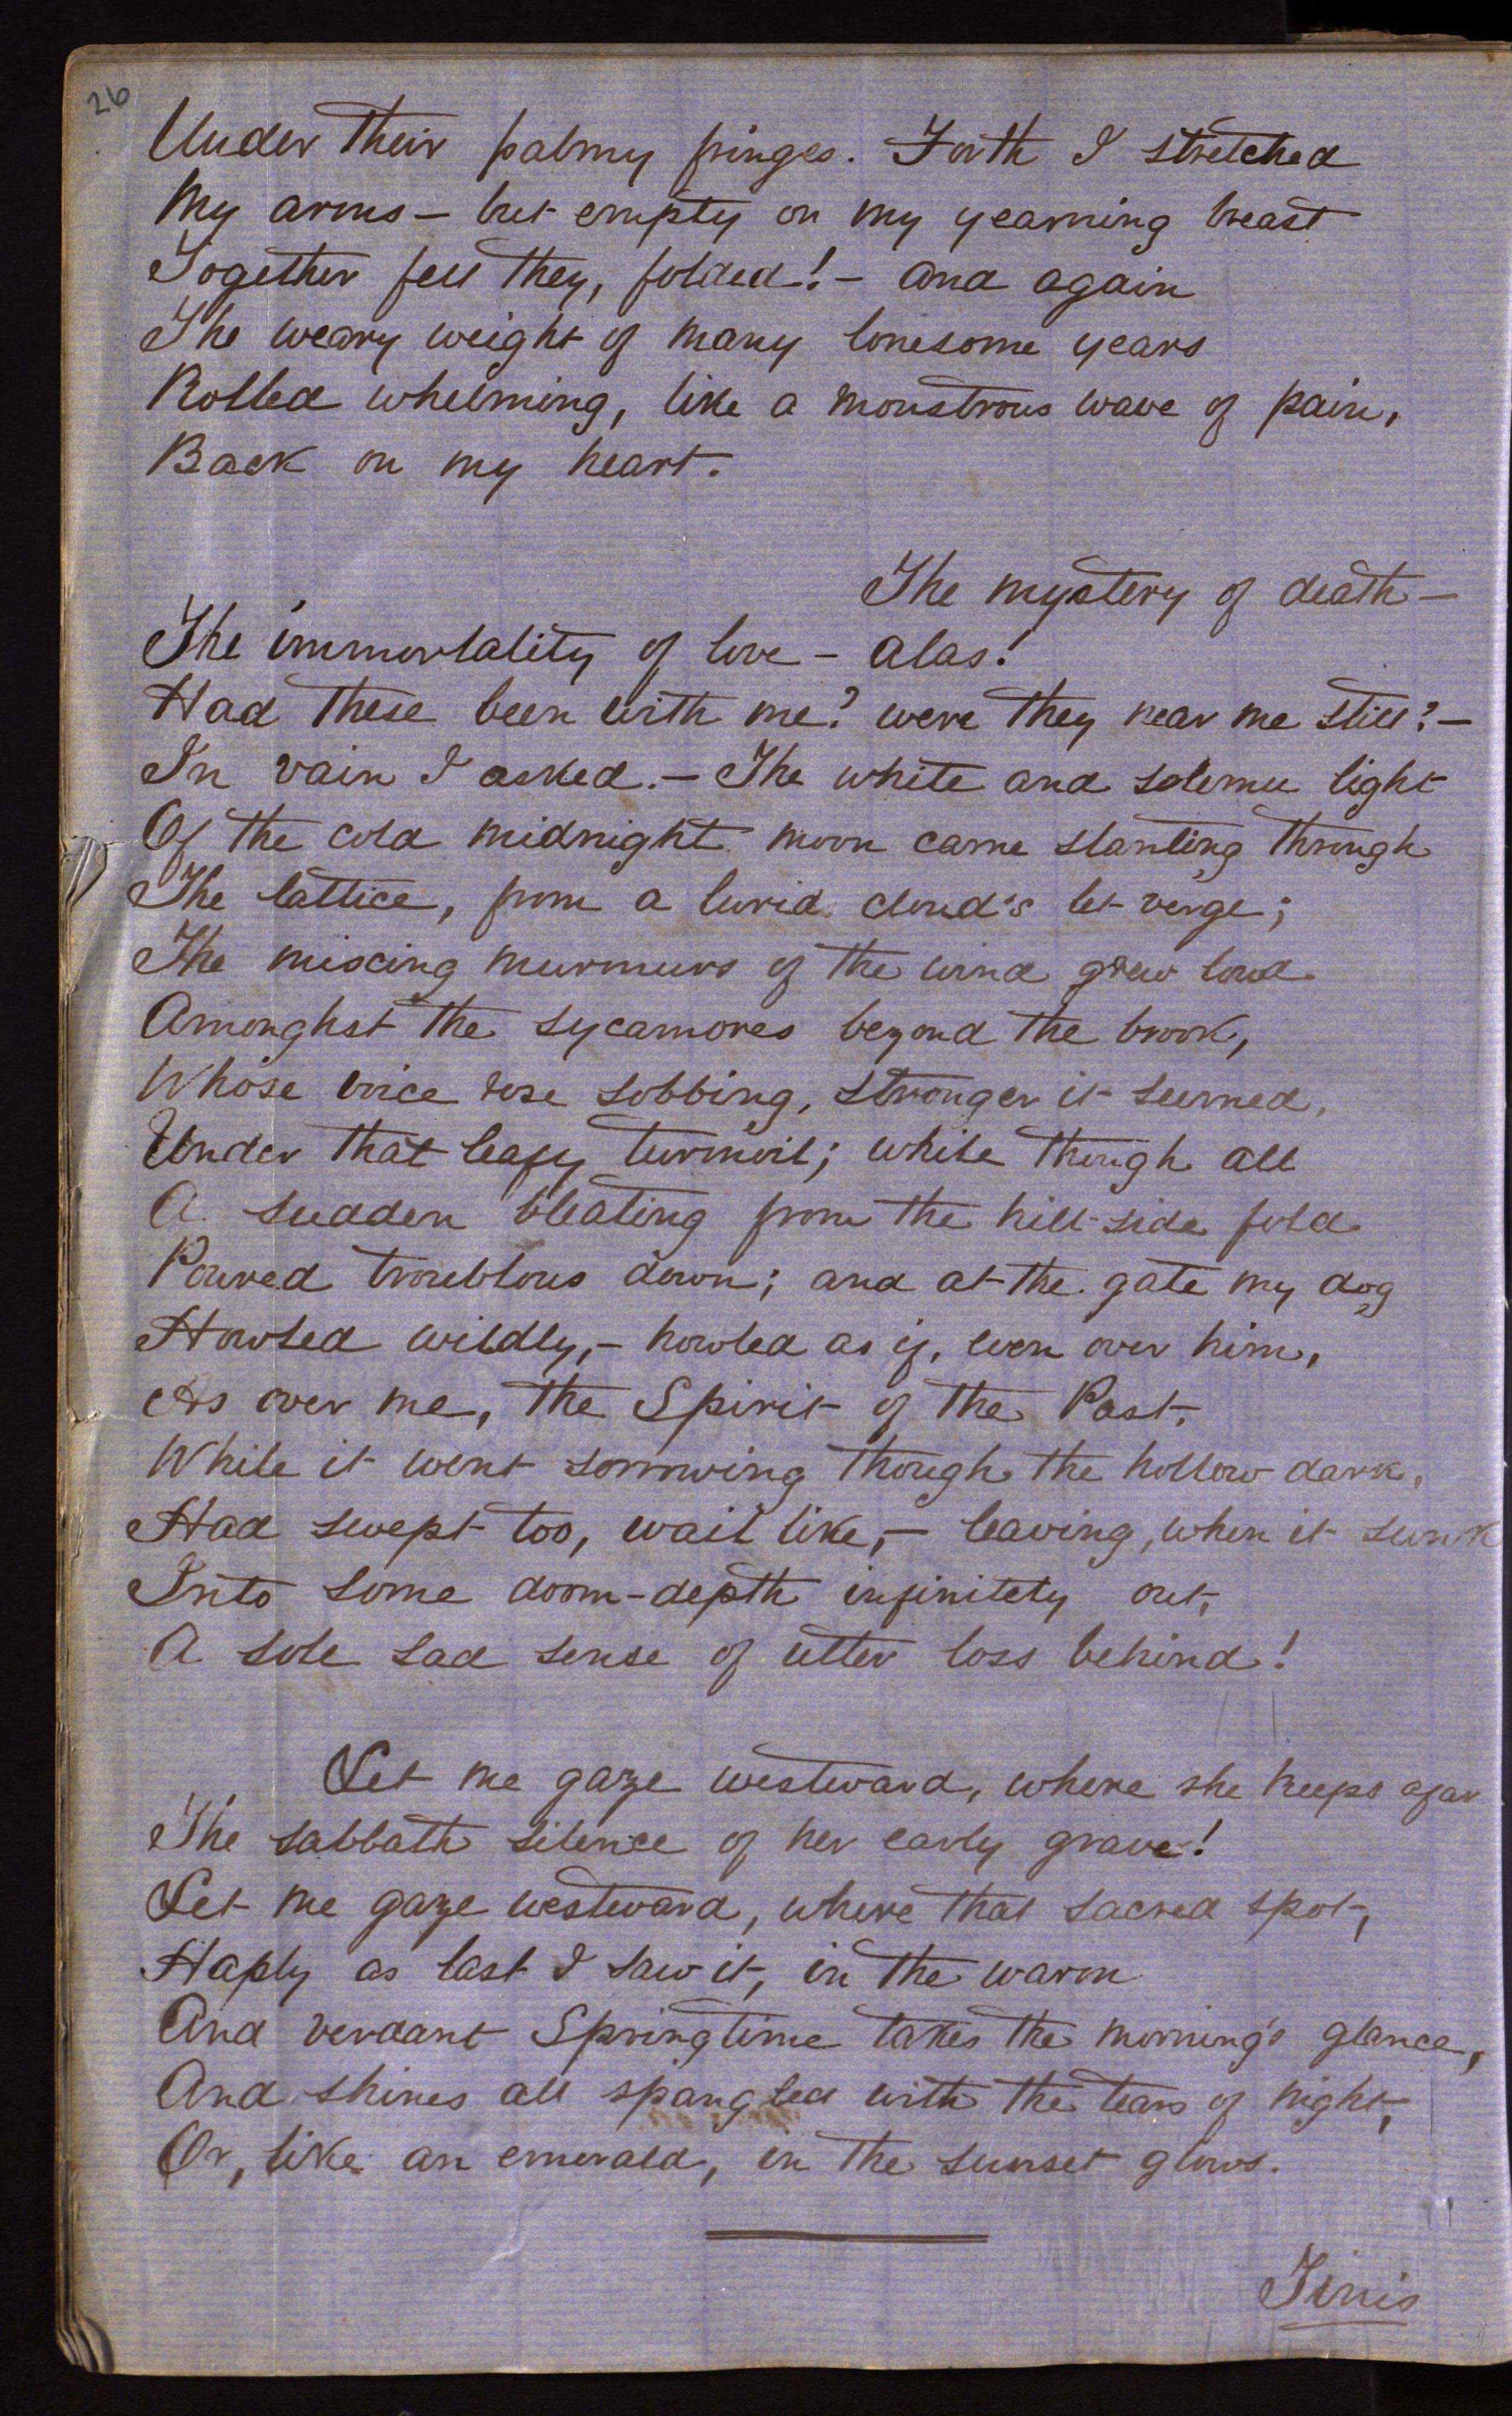 26
Under their palmy fringes. Forth I stretched
My arms – but empty on my yearning breast
Together fell they, folded! – and again
The weary weight of many lonesome years
Rolled whelming, like a monstrous wave of pain,
Back on my heart.
The mystery of death –
The immortality of love – alas!
Had these been with me? were they near me still? –
In vain I asked. – The white and solemn light
Of the cold midnight moon came slanting through
The lattice, from a lurid cloud's let verge;
The mixing murmurs of the wind grew loud
Amonghst the sycamores beyond the brook,
Whose voice rose sobbing, stronger it seemed,
Under that leafy turmoil; while though all
A sudden bleating from the hill-side fold
Poured troublous down; and at the gate my dog
Howled wildly, – howled as if, even over him,
As over me, the Spirit of the Past,
While it went sorrowing though the hollow dark,
Had swept too, wail like, – leaving, when it sunk
Into some doom-depth infinitely out,
A sole sad sense of utter loss behind!
Let me gaze westward, where she keeps afar
The sabbath silence of her early grave!
Let me gaze westward, where that sacred spot,
Haply as last I saw it, in the warm
And verdant Springtime takes the morning's glance,
And shines all spangled with the tears of night,
Or, like an emerald, in the sunset glows.
Finis